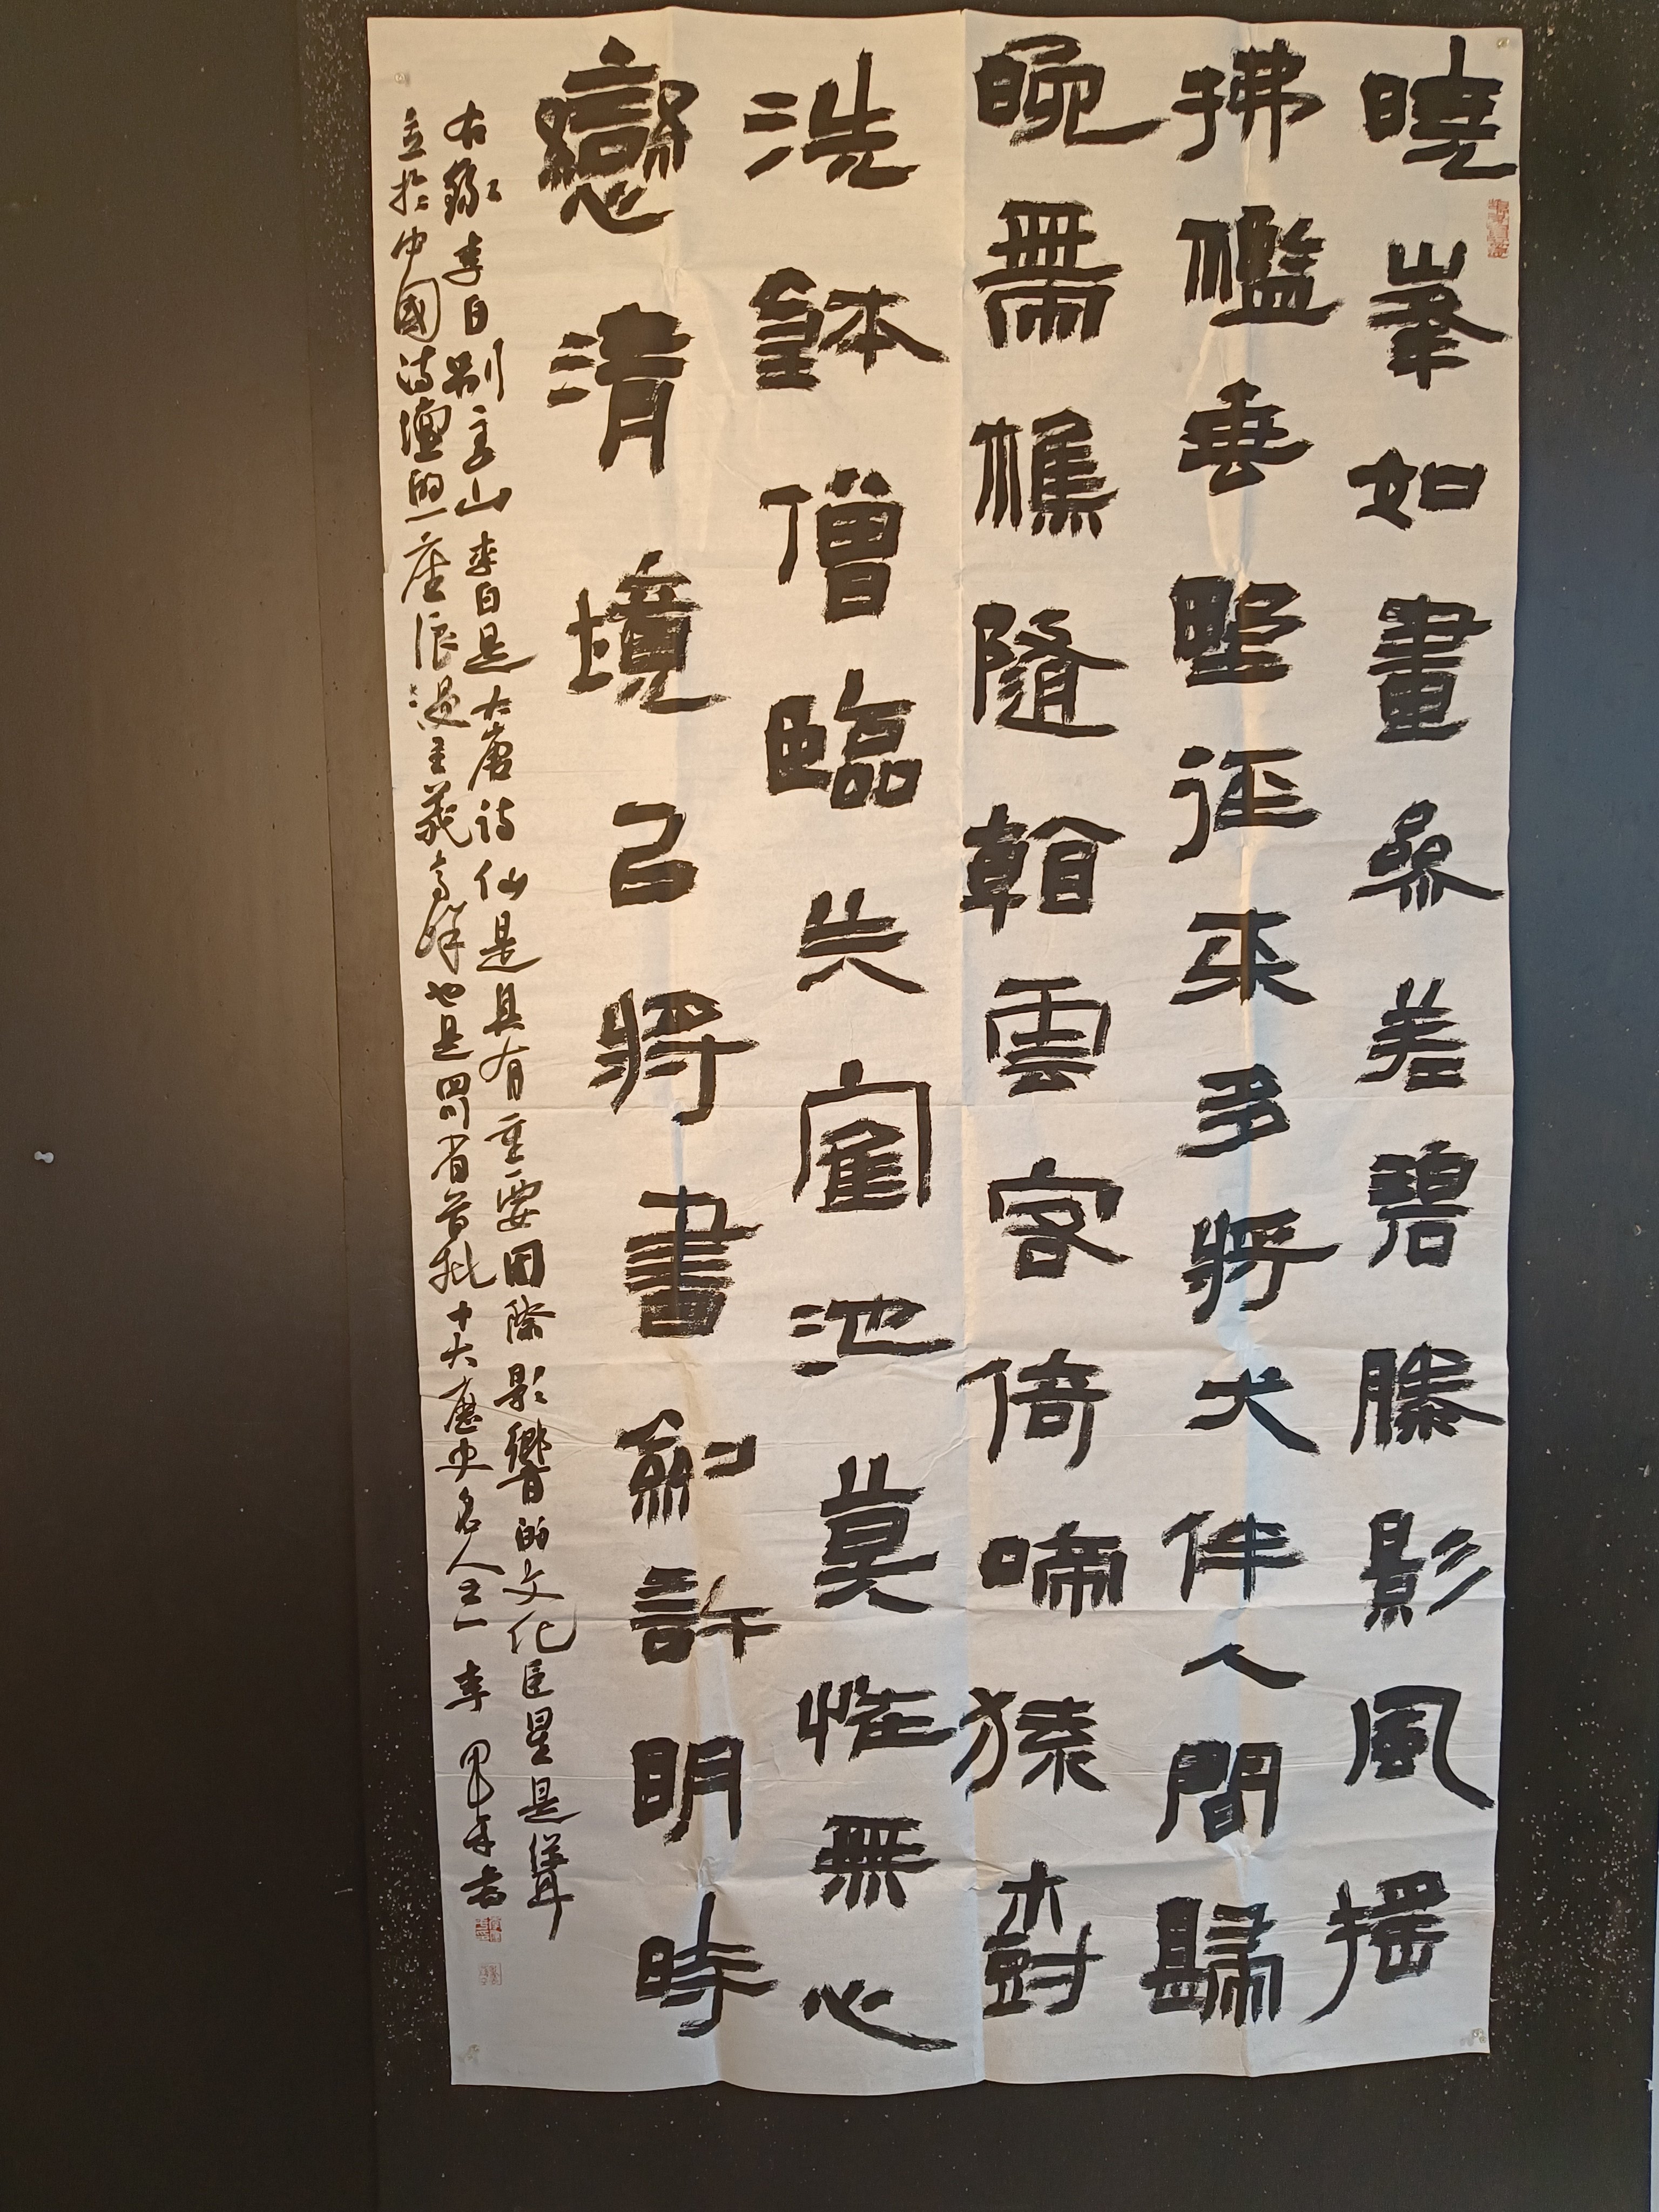 曉峯如畫參差碧滕影風搖
拂檻垂野徑來多將犬伴人間歸
晚帶樵隨看雲客倚啼猿樹
洗鉢僧臨失鶴池莫怪無心
戀清境已將書劍許明時
右錄李白别匡山李白是大唐诗仙是具有重要国際影響的文化巨星是聳
立於中國诗壇的一座浪漫主義高峰也是四川省首批十大歷史名人之一 李